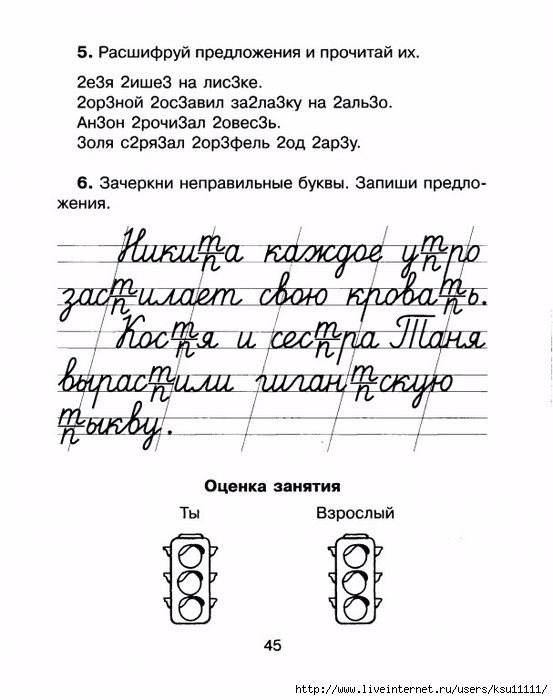 5. Расшифруй предложения и прочитай их.
2е3я 2ише3 на лис3ке.
2ор3ной 2ос3авил за2ла3ку на 2аль3о.
Ан3он 2рочи3ал 2овес3ь.
3оля с2ря3ал 2ор3фель 2од 2ар3у.
6. Зачеркни неправильные буквы. Запиши предло-
жения.
Ники т/п а каждое у т/п ро
зас т/п илает свою крова т/п ь.
Кос т/п я и сес т/п ра Таня
вырас т/п или гиган т/п скую
т/п ыкву.
Оценка занятия
Ты Взрослый
45
http://www.liveinternet.ru/users/ksu11111/